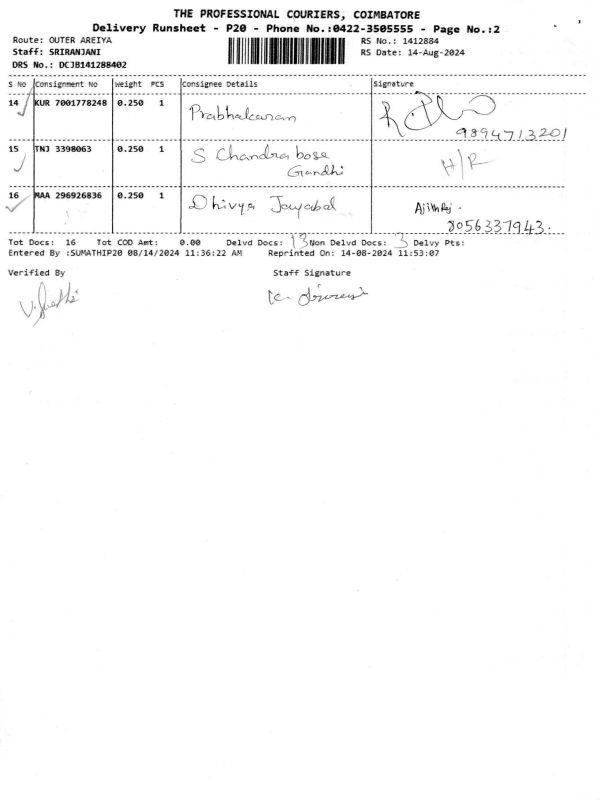 THE PROFESSIONAL COURIERS, COIMBATORE
Delivery Runsheet - P20 - Phone No.:0422-3505555 - Page No.:2
Route: OUTER AREIYA RS No.: 1412884
Staff: SRIRANJANI RS Date: 14-Aug-2024
DRS No.: DCJB141288402
S No Consignment No Weight PCS Consignee Details Signature
14 KUR 7001778248 0.250 1 Prabhakaran
9894713201
15 TNJ 3398063 0.250 1 S Chandra bose H/R
Gandhi
16 MAA 296926836 0.250 1 Dhivya Jayabal Ajith Raj.
8056337943.
Tot Docs: 16 Tot COD Amt: 0.00 Delvd Docs: 13 Non Delvd Docs: 3 Delvy Pts:
Entered By :SUMATHIP20 08/14/2024 11:36:22 AM Reprinted On: 14-08-2024 11:53:07
Verified By Staff Signature